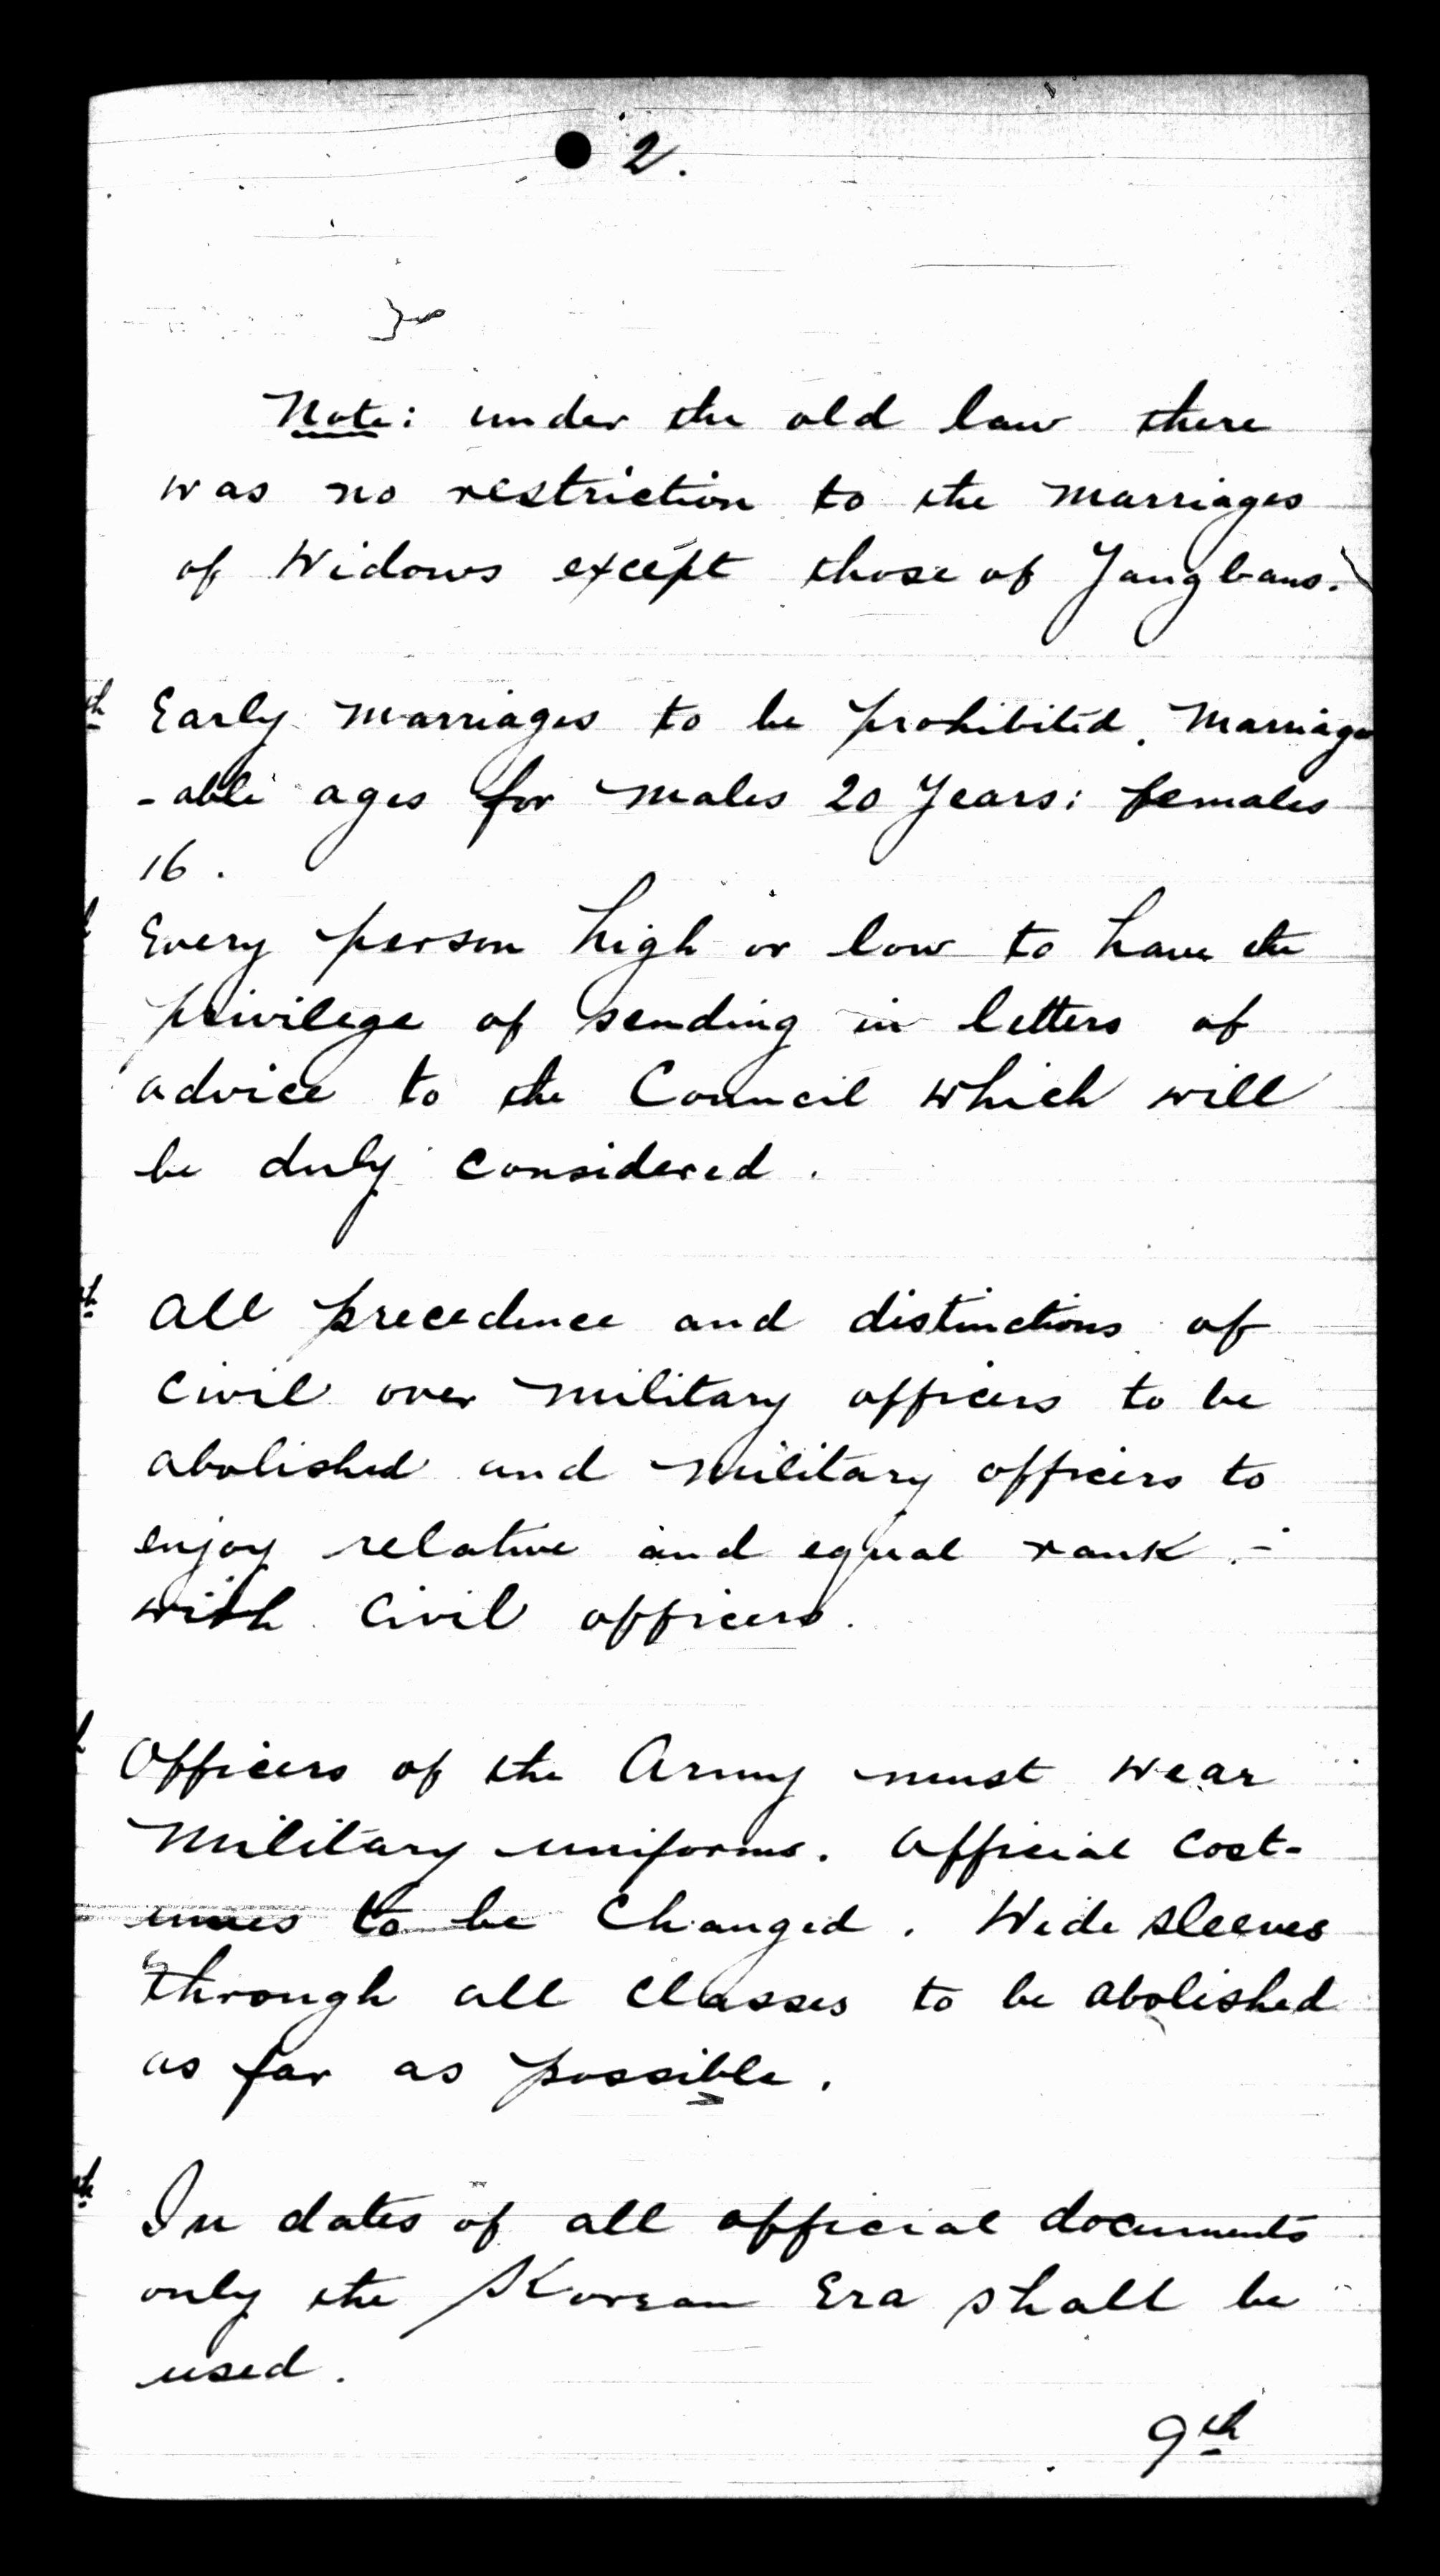 2.
Note: under the old law there
was no restriction to the marriages
of Widows except those of Yangbans.
th Early marriages to be prohibited. Marriage
-able ages for males 20 Years: females
16.
Every person high or low to have the
privilege of sending in letters of
advice to the Council which will
be duly considered.
th All precedence and distinctions of
civil over military officers to be
abolished and military officers to
enjoy relative and equal rank -
with civil officers.
Officers of the Army must wear
Military uniforms. Official cost-
umes to be changed. Wide sleeves
through all classes to be abolished
as far as possible.
th In dates of all official documents
only the Korean Era shall be
used.
9th